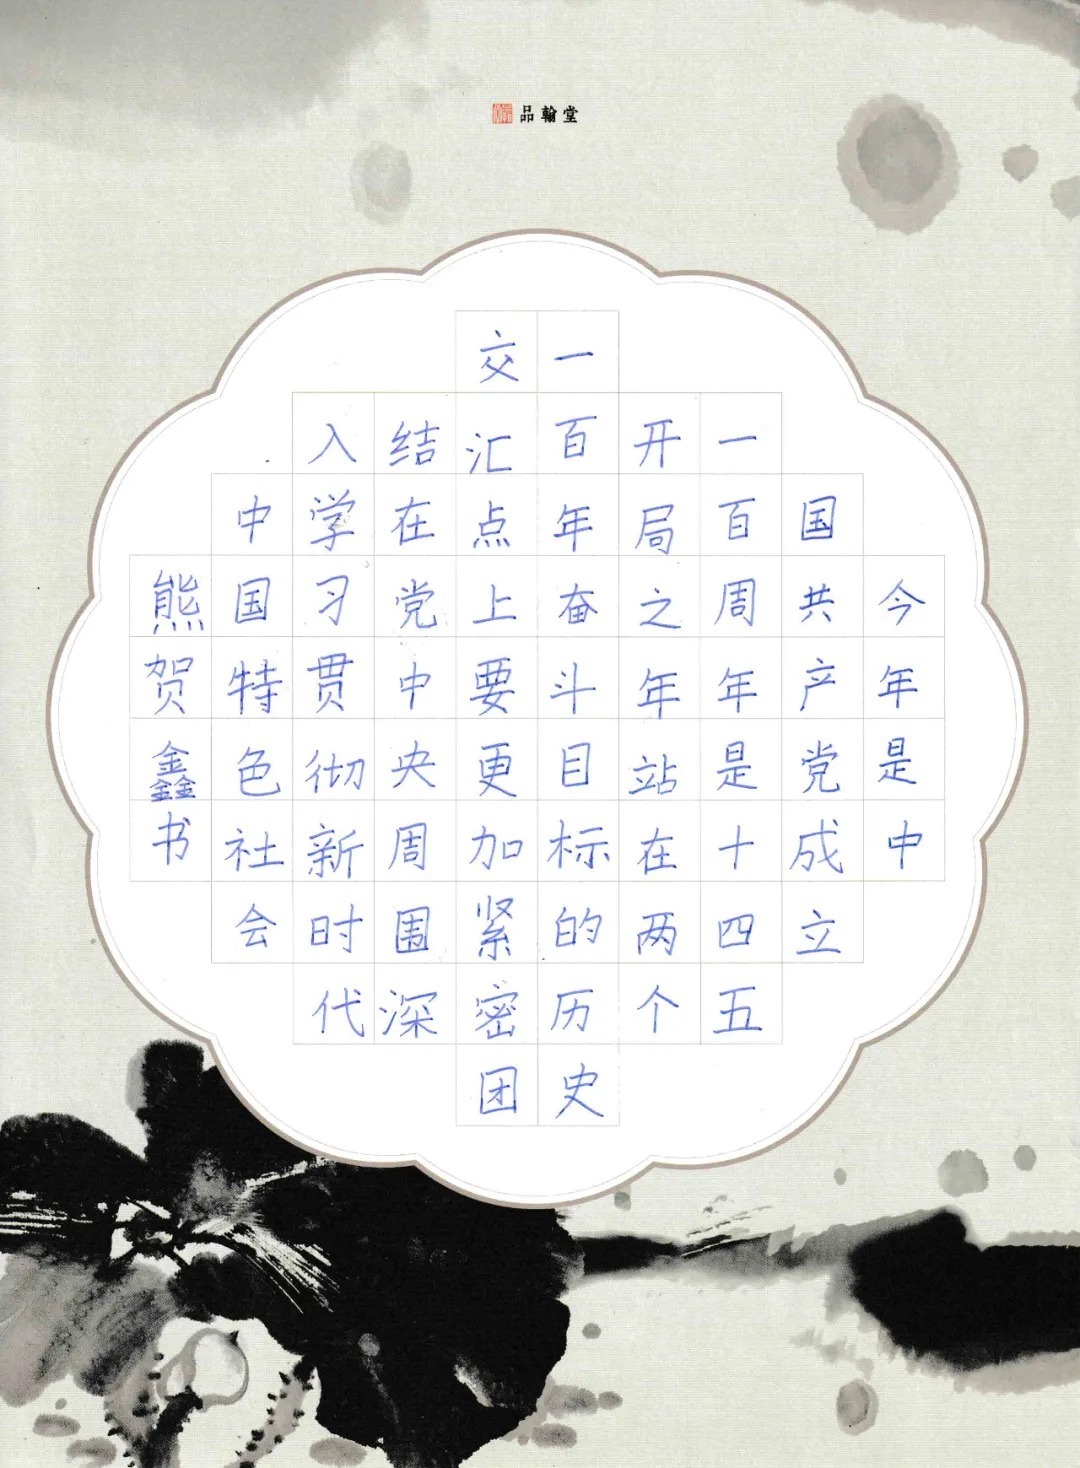 品翰堂
今年是中
国共产党成立
一百周年是十四五
开局之年站在两个
一百年奋斗目标的历史
交汇点上要更加紧密团
结在党中央周围深
入学习贯彻新时代
中国特色社会
熊贺鑫书